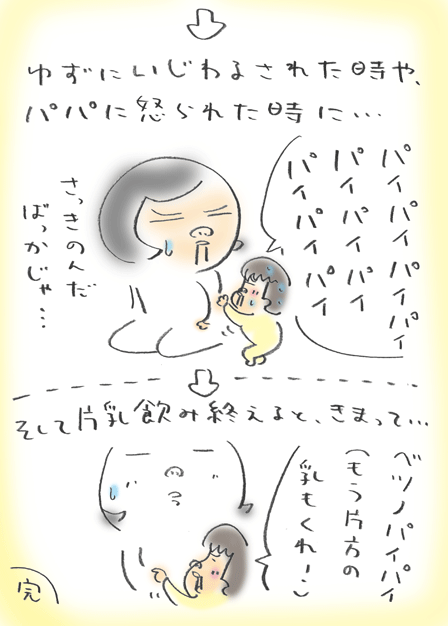 ゆずにいじわるされた時や、
パパに怒られた時に…
パイパイパイパイ
パイパイパイ
パイパイパイ
さっきのんだ
ばっかじゃ…
そして片乳飲み終えると、きまって…
ベツノパイパイ
(もう片方の
乳もくれ!)
完